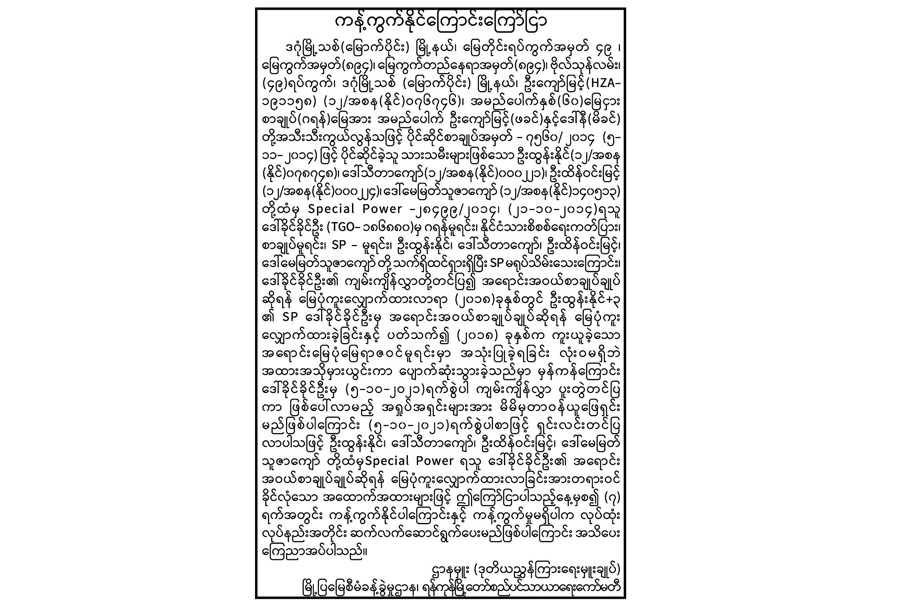 ကန့်ကွက်နိုင်ကြောင်းကြော်ငြာ
ဒဂုံမြို့သစ်(မြောက်ပိုင်း) မြို့နယ်၊ မြေတိုင်းရပ်ကွက်အမှတ် ၄၉ ၊
မြေကွက်အမှတ်(၈၉၄)၊ မြေကွက်တည်နေရာအမှတ်(၈၉၄)၊ ဗိုလ်သုန်လမ်း၊
(၄၉)ရပ်ကွက်၊ ဒဂုံမြို့သစ် (မြောက်ပိုင်း) မြို့နယ်၊ ဦးကျော်မြင့်(HZA-
၁၉၁၁၅၈) (၁၂/အစန(နိုင်)၀၇၆၇၄၆)၊ အမည်ပေါက်နှစ်(၆၀)မြေငှား
စာချုပ်(ဂရန်)မြေအား အမည်ပေါက် ဦးကျော်မြင့်(ဖခင်)နှင့်ဒေါ်နီ(မိခင်)
တို့အသီးသီးကွယ်လွန်သဖြင့် ပိုင်ဆိုင်စာချုပ်အမှတ် - ၇၅၆၀/ ၂၀၁၄ (၅-
၁၁-၂၀၁၄) ဖြင့် ပိုင်ဆိုင်ခဲ့သူ သားသမီးများဖြစ်သော ဦးထွန်းနိုင်(၁၂/အစန
(နိုင်)၀၇၈၇၄၈)၊ ဒေါ်သီတာကျော်(၁၂/အစန(နိုင်)၀၀၀၂၂၁)၊ ဦးထိန်ဝင်းမြင့်
(၁၂/အစန(နိုင်)၀၀၀၂၂၄)၊ဒေါ်မေမြတ်သူဇာကျော် (၁၂/အစန(နိုင်)၁၄၀၅၁၃)
တို့ထံမှ Special Power -၂၈၄၉၉/၂၀၁၄၊ (၂၁-၁၀-၂၀၁၄)ရသူ
ဒေါ်ခိုင်ခိုင်ဦး (TGO-၁၈၆၈၈၀)မှ ဂရန်မူရင်း၊ နိုင်ငံသားစိစစ်ရေးကတ်ပြား၊
စာချုပ်မူရင်း၊ SP - မူရင်း၊ ဦးထွန်းနိုင်၊ ဒေါ်သီတာကျော်၊ ဦးထိန်ဝင်းမြင့်၊
ဒေါ်မေမြတ်သူဇာကျော် တို့ သက်ရှိထင်ရှားရှိပြီး SP မရုပ်သိမ်းသေးကြောင်း၊
ဒေါ်ခိုင်ခိုင်ဦး၏ ကျမ်းကျိန်လွှာတို့တင်ပြ၍ အရောင်းအဝယ်စာချုပ်ချုပ်
ဆိုရန် မြေပုံကူးလျှောက်ထားလာရာ (၂၀၁၈)ခုနှစ်တွင် ဦးထွန်းနိုင်+၃
၏ SP ဒေါ်ခိုင်ခိုင်ဦးမှ အရောင်းအဝယ်စာချုပ်ချုပ်ဆိုရန် မြေပုံကူး
လျှောက်ထားခဲ့ခြင်းနှင့် ပတ်သက်၍ (၂၀၁၈) ခုနှစ်က ကူးယူခဲ့သော
အရောင်းမြေပုံမြေရာဇဝင်မူရင်းမှာ အသုံးပြုခဲ့ရခြင်း လုံးဝမရှိဘဲ
အထားအသိုမှားယွင်းကာ ပျောက်ဆုံးသွားခဲ့သည်မှာ မှန်ကန်ကြောင်း
ဒေါ်ခိုင်ခိုင်ဦးမှ (၅-၁၀-၂၀၂၁)ရက်စွဲပါ ကျမ်းကျိန်လွှာ ပူးတွဲတင်ပြ
ကာ ဖြစ်ပေါ်လာမည့် အရှုပ်အရှင်းများအား မိမိမှတာဝန်ယူဖြေရှင်း
မည်ဖြစ်ပါကြောင်း (၅-၁၀-၂၀၂၁)ရက်စွဲပါစာဖြင့် ရှင်းလင်းတင်ပြ
လာပါသဖြင့် ဦးထွန်းနိုင်၊ ဒေါ်သီတာကျော်၊ ဦးထိန်ဝင်းမြင့်၊ ဒေါ်မေမြတ်
သူဇာကျော် တို့ထံမှSpecial Power ရသူ ဒေါ်ခိုင်ခိုင်ဦး၏ အရောင်း
အဝယ်စာချုပ်ချုပ်ဆိုရန် မြေပုံကူးလျှောက်ထားလာခြင်းအားတရားဝင်
ခိုင်လုံသော အထောက်အထားများဖြင့် ဤကြော်ငြာပါသည့်နေ့မှစ၍ (၇)
ရက်အတွင်း ကန့်ကွက်နိုင်ပါကြောင်းနှင့် ကန့်ကွက်မှုမရှိပါက လုပ်ထုံး
လုပ်နည်းအတိုင်း ဆက်လက်ဆောင်ရွက်ပေးမည်ဖြစ်ပါကြောင်း အသိပေး
ကြေညာအပ်ပါသည်။
ဌာနမှူး (ဒုတိယညွှန်ကြားရေးမှူးချုပ်)
မြို့ပြမြေစီမံခန့်ခွဲမှုဌာန၊ ရန်ကုန်မြို့တော်စည်ပင်သာယာရေးကော်မတီ